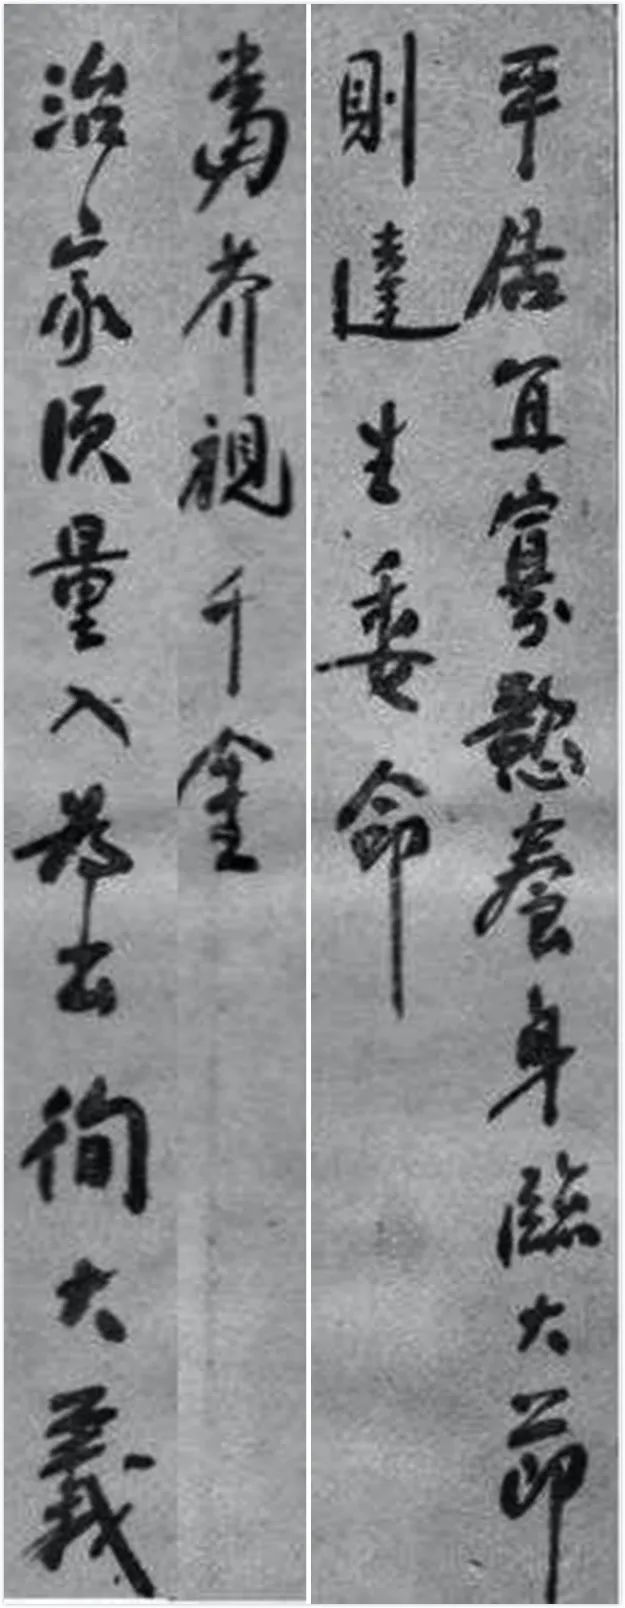 平居宜寡慾養身臨大節
則達生委命
治家須量入為出徇大義
當芥視千金